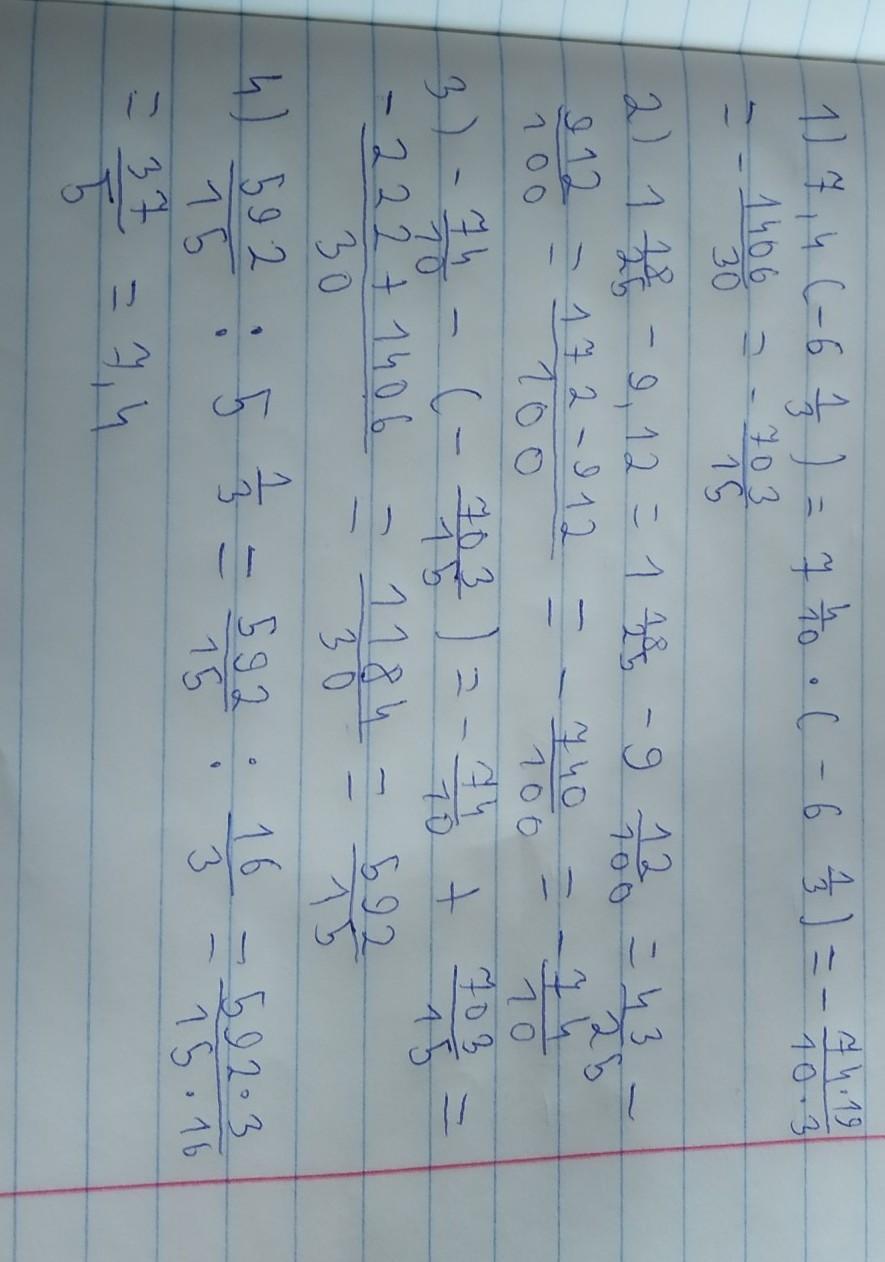 1) 7,4 (-6 1/3) = 7 4/10 · (-6 1/3) = - 74·19/10·3
= - 1406/30 = - 703/15
2) 1 18/25 - 9,12 = 1 18/25 - 9 12/100 = 43/25 -
912/100 = 172-912/100 = - 740/100 = - 74/10
3) - 74/10 - (- 703/15) = - 74/10 + 703/15 =
-222+1406/30 = 1184/30 = 592/15
4) 592/15 : 5 1/3 = 592/15 : 16/3 = 592·3/15·16
= 37/5 = 7,4